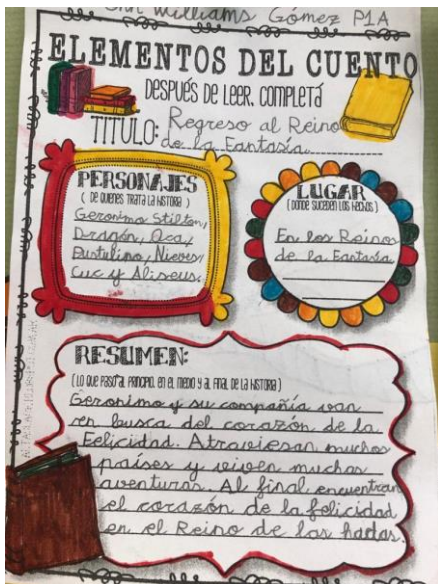 Williams Gómez P1A
ELEMENTOS DEL CUENTO
DESPUÉS DE LEER, COMPLETÁ
TITULO: Regreso al Reino
de la Fantasía
PERSONAJES
( DE QUIENES TRATA LA HISTORIA )
Geronimo Stilton,
Dragón, Oca,
Nieves,
Cuc y Aliseus.
LUGAR
(DONDE SUCEDEN LOS HECHOS)
En los Reinos
de la Fantasía
RESUMEN:
(LO QUE PASÓ AL PRINCIPIO, EN EL MEDIO Y AL FINAL DE LA HISTORIA)
Geronimo y su compañía van
en busca del corazón de la
Felicidad. Atraviesan muchos
países y viven muchas
aventuras. Al final encuentran
el corazón de la felicidad
en el Reino de las hadas.